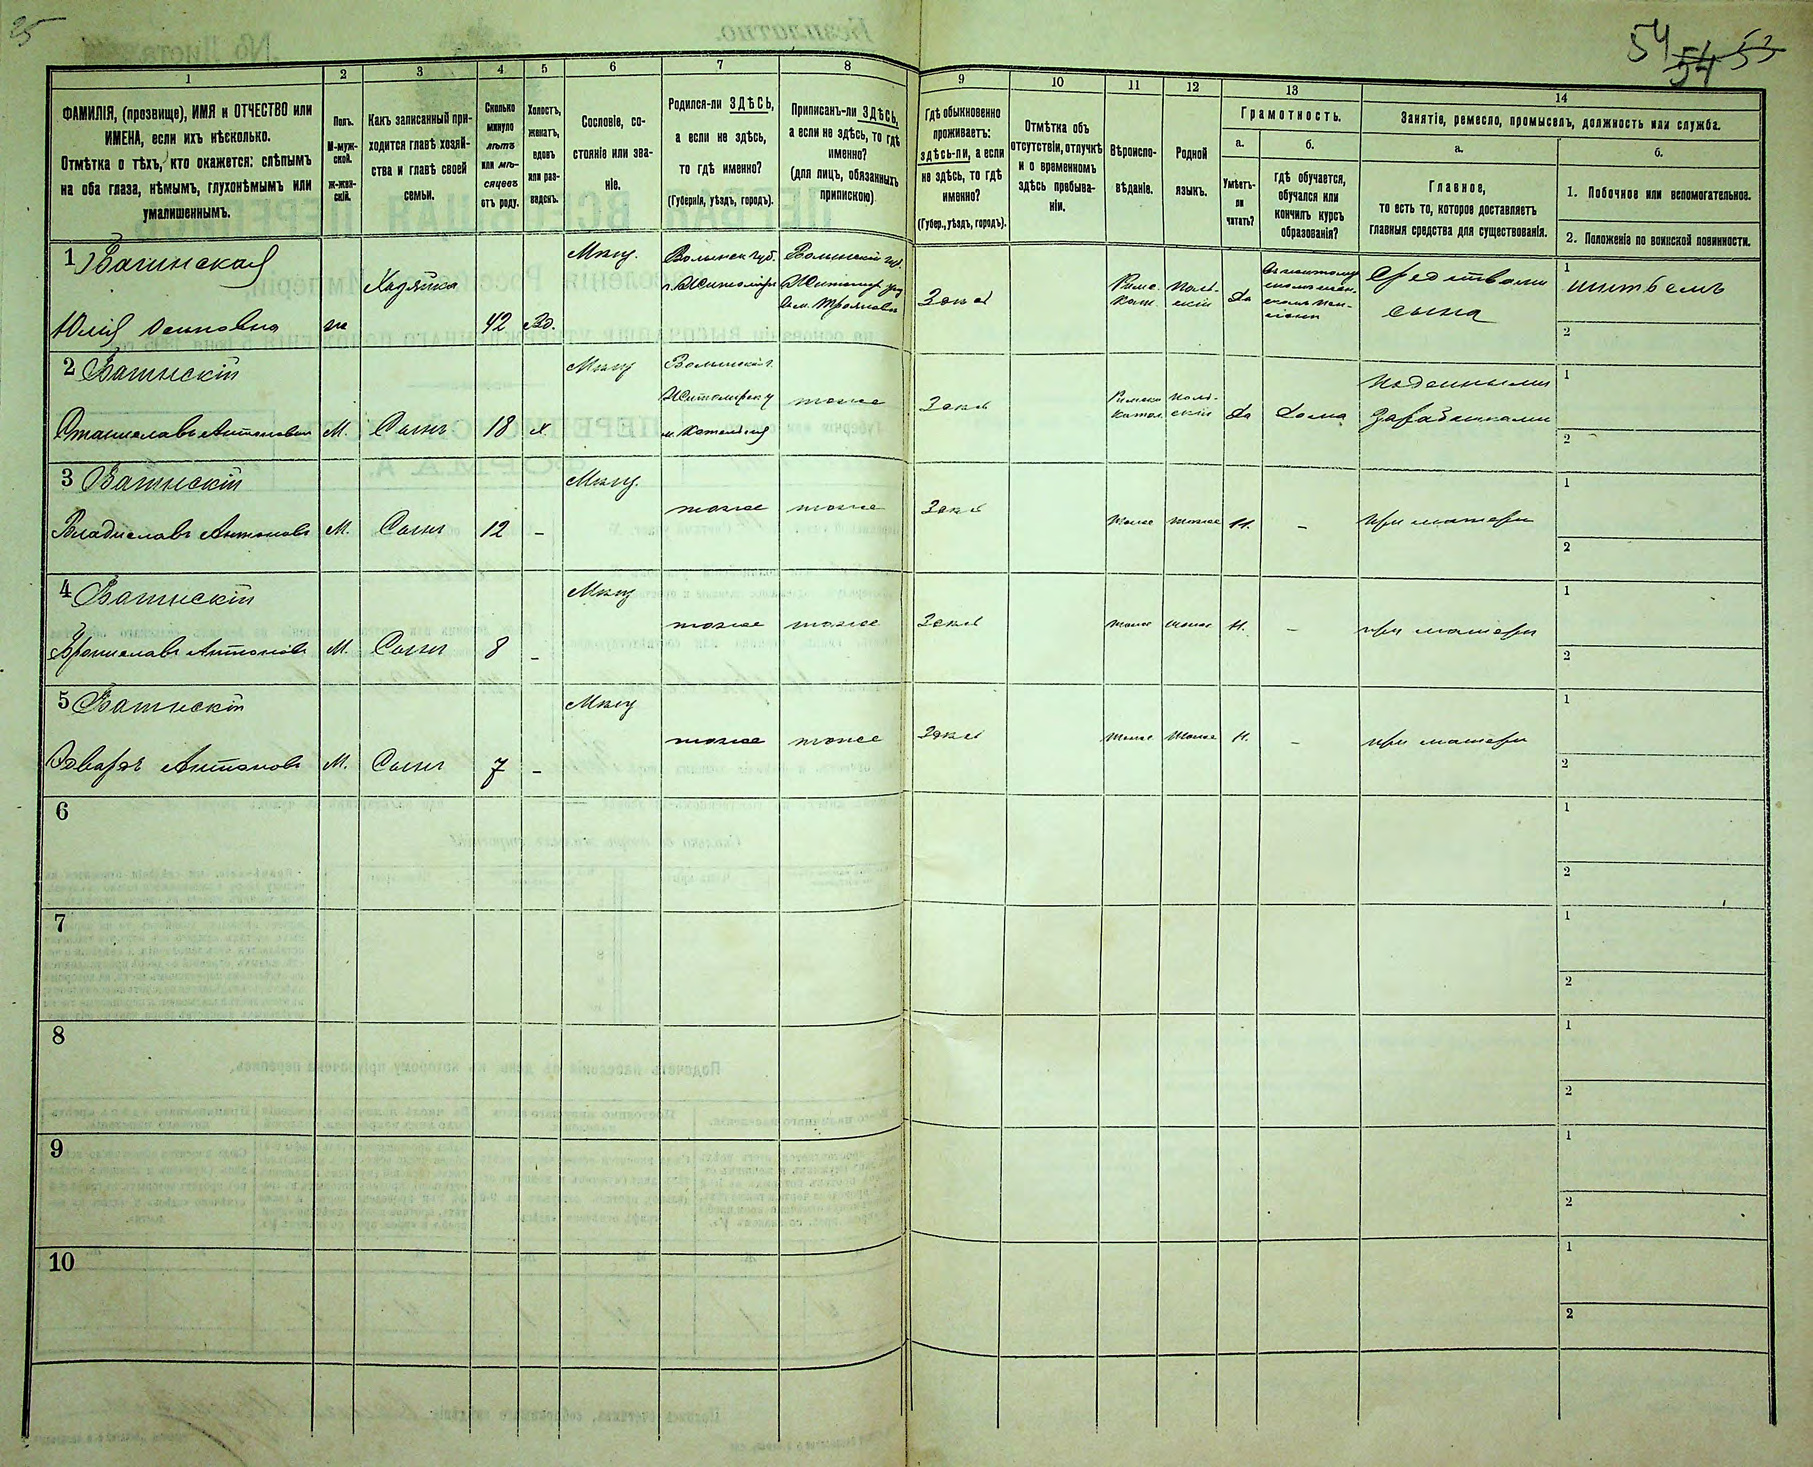 25
54 54 53
54
1
2
3
4
5
6
7
8
9
10
11
12
13
14
ФАМИЛІЯ, (прозвище), ИМЯ и ОТЧЕСТВО или
ИМЕНА, если ихъ нѣсколько.
Отмѣтка о тѣхъ, кто окажется: слѣпымъ
на оба глаза, нѣмымъ, глухонѣмымъ или
умалишеннымъ.
Полъ.
М-муж-
ской.
ж-жен-
скій.
Какъ записанный при-
ходится главѣ хозяй-
ства и главѣ своей
семьи.
Сколько
минуло
лѣтъ
или мѣ-
сяцевъ
отъ роду.
Холостъ,
женатъ,
вдовъ
или раз-
веденъ.
Сословіе, со-
стояніе или зва-
ніе.
Родился-ли ЗДѢСЬ,
а если не здѣсь,
то гдѣ именно?
(Губернія, уѣздъ, городъ).
Приписанъ-ли ЗДѢСЬ,
а если не здѣсь, то гдѣ
именно?
(для лицъ, обязанныхъ
припискою)
Гдѣ обыкновенно
проживаетъ:
здѣсь-ли, а если
не здѣсь, то гдѣ
именно?
(Губер., уѣздъ, городъ).
Отмѣтка объ
отсутствіи, отлучкѣ
и о временномъ
здѣсь пребыва-
ніи.
Вѣроиспо-
вѣданіе.
Родной
языкъ.
Грамотность.
а.
Умѣетъ-
ли
читать?
б.
гдѣ обучается,
обучался или
кончилъ курсъ
образованія?
Занятіе, ремесло, промыселъ, должность или служба.
а.
Главное,
то есть то, которое доставляетъ
главныя средства для существованія.
б.
1. Побочное или вспомогательное.
2. Положеніе по воинской повинности.
1
Юлія Осиповна
ж
Хозяйка
42
Вд.
Мѣщ.
Волынск. губ.
г. Житоміръ
Волынской губ.
Житомир. уѣз
Здѣсь
Римс.
Кат.
Поль-
скій
Да
Средствами
сына
1 шитьемъ
2
2
Станиславъ Антоновъ
М.
Сынъ
18
х
Мѣщ
Волынской г.
Житомірск у
тоже
Здѣсь
Римско
Катол.
Поль-
скій
Да
Дома
Поденными
заработками
1
2
3
Владиславъ Антоновъ
М.
Сынъ
12
–
Мѣщ.
тоже
тоже
Здѣсь
тоже
тоже
Н.
–
при матери
1
2
4
Брониславъ Антоновъ
М.
Сынъ
8
–
Мѣщ
тоже
тоже
Здѣсь
тоже
тоже
Н.
–
при матери
1
2
5
Эдвардъ Антоновъ
М.
Сынъ
7
–
Мѣщ
тоже
тоже
Здѣсь
тоже
тоже
Н.
–
при матери
1
2
6
1
2
7
1
2
8
1
2
9
1
2
10
1
2